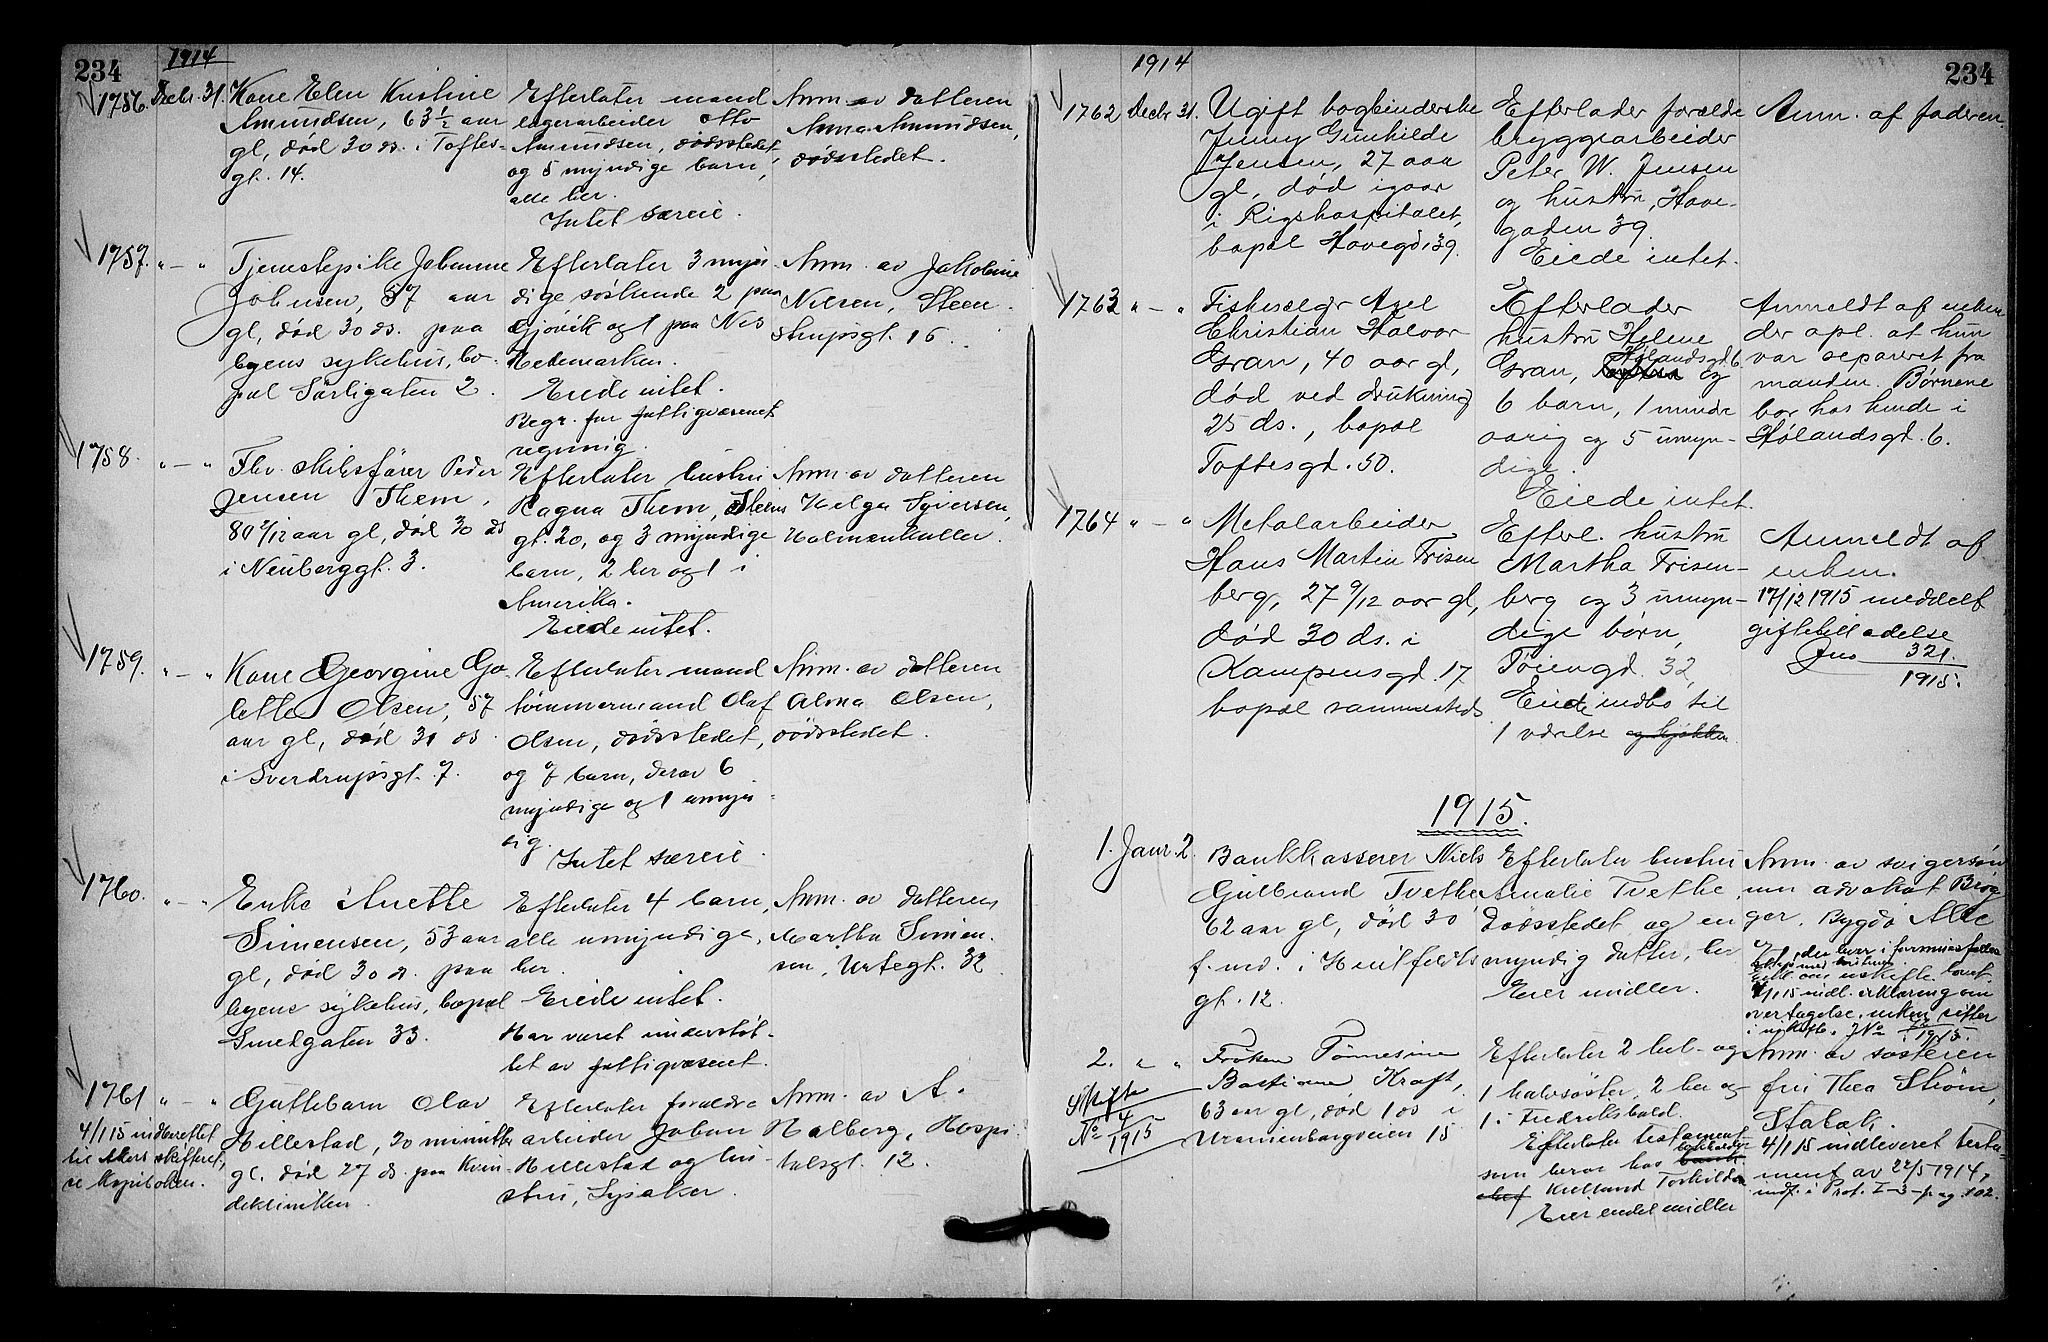 234
1914
1756. Decbr. 31. Kone Elen Kristine
Amundsen, 63 1/2 aar
gl., død 30 ds. i Toftes-
gt. 14.
Efterlater mand
lagerarbeider Otto
Amundsen, dødsstedet
og 5 myndige barn,
alle her.
Intet særeie.
Anm. av datteren
Anna Amundsen,
dødsstedet.
1757. " — " Tjenestepike Johanne
Johnsen, 57 aar
gl., død 30 ds. paa
byens sykehus, bo-
pæl Sørligaten 2.
Efterlater 3 myn-
dige søskende 2 paa
Gjøvik og 1 paa Nes
Hedemarken.
Eiede intet.
Begr. for fattigvæsenets
regning.
Anm. av Jakobine
Nilsen, Steen-
strupsgt. 16.
1758. " — " Fhv. skibsfører Peder
Jensen Them,
80 2/12 aar gl., død 30 ds
i Neuberggt. 3.
Efterlater hustru
Ragna Them, Steens
gt. 20, og 3 myndige
barn, 2 her og 1 i
Amerika.
Eiede intet.
Anm. av datteren
Helga Syversen,
Holmenkollen.
1759. " — " Kone Georgine Go-
lette Olsen, 57
aar gl., død 31 ds.
i Sverdrupsgt. 7.
Efterlater mand
tømmermand Olaf
Olsen, dødsstedet,
og 7 barn, derav 6
myndige og 1 umyn-
dig.
Intet særeie.
Anm. av datteren
Alma Olsen,
dødsstedet.
1760. " — " Enke Anette
Simensen, 53 aar
gl., død 30 ds. paa
byens sykehus, bopæl
Smedgaten 33.
Efterlater 4 barn,
alle umyndige,
her.
Eiede intet.
Har været understøt-
tet av fattigvæsenet.
Anm. av datteren
Martha Simen-
sen, Urtegt. 32.
1761 " — " Guttebarn Olav
Hillestad, 20 minutter
gl. død 27 ds. paa Kvin-
deklinikken.
4/1 15 indberettet
til Akers skifteret,
se kopiboken.
Efterlater forældre
arbeider Johan
Hillestad og hu-
stru, Lysaker.
Anm. av A.
Halberg, Hospi-
talsgt. 12.
1914
234
1762 Decbr 31. Ugift bogbinderske
Jenny Gunhilde
Jensen, 27 aar
gl., død igaar
i Rigshospitalet,
bopæl Havegd. 39.
Efterlader forældre
bryggearbeider
Peter W. Jensen
og hustru, Have-
gaden 39.
Eiede intet.
Anm. af faderen.
1763 " — " Fiskesælgr Axel
Christian Halvor
Gran, 40 aar gl,
død ved drukning
25 ds., bopæl
Toftesgd. 50.
Efterlader
hustru Helene
Gran, Hølandsgd. 6
og
6 barn, 1 mindre
aarig og 5 umyn-
dige.
Eiede intet.
Anmeldt af enken
der opl. at hun
var separeret fra
manden. Børnene
bor hos hende i
Hølandsgd. 6.
1764 " — " Metalarbeider
Hans Martin Frisen
berg, 27 9/12 aar gl,
død 30 ds. i
Kampensgd. 17
bopæl sammesteds
Efterl. hustru
Martha Frisen-
berg og 3 umyn-
dige børn,
Tøiengd. 32,
Eiede indbo til
1 værelse og kjøkken.
Anmeldt af
enken.
17/12 1915 meddelt
giftetilladelse
Jno 321
1915.
1915.
1. Janr. 2. Bankkasserer Niels
Gulbrand Tvethe
62 aar gl., død 30
f. md. i Huitfeldts
gt. 12.
Efterlater hustru
Amalie Tvethe,
dødsstedet og en
myndig datter, her
Eier midler.
Anm. av svigersøn-
nen advokat Brøg
ger, Bygdø Alle
7
1/1 15 indl. erklæring om
overtagelse, enken sitter
i uskifte. JNo
1915.
2. " " Frøken Tønnesine
Bastiane Kraft,
63 aar gl., død 1 ds i
Uranienborgveien 15
Skifte
No 4
1915
Efterlater 2 hel- og
1 halvsøster, 2 her og
1 i Fredrikshald.
Efterlater testament
som beror hos
Kielland Torkildsen
Eier endel midler
Anm. av søsteren
fru Thea Strøm,
Stabæk.
4/1 15 indleveret testa-
ment av 22/5 1914,
indf. i Prot. I-3-pag. 102.